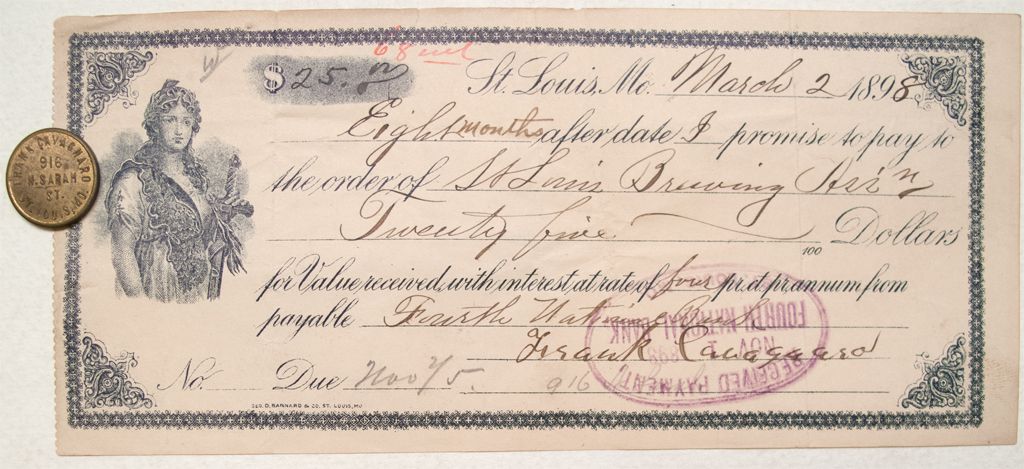 68 int
$25.00
St. Louis, Mo. March 2 1898
Eight months after date I promise to pay to
the order of St Louis Brewing Ass'n
Twenty five /100 Dollars
for Value received, with interest at rate of four pr. ct. pr. annum from
payable Fourth National Bank
Frank Cavagnaro
No. Due Nov 2/5. 916
GEO. D. BARNARD & CO. ST. LOUIS, MO
RECEIVED PAYMENT
NOV 1 1898
FOURTH NATIONAL BANK
FRANK CAVAGNARO
916
N. SARAH
ST.
ST. LOUIS, MO.